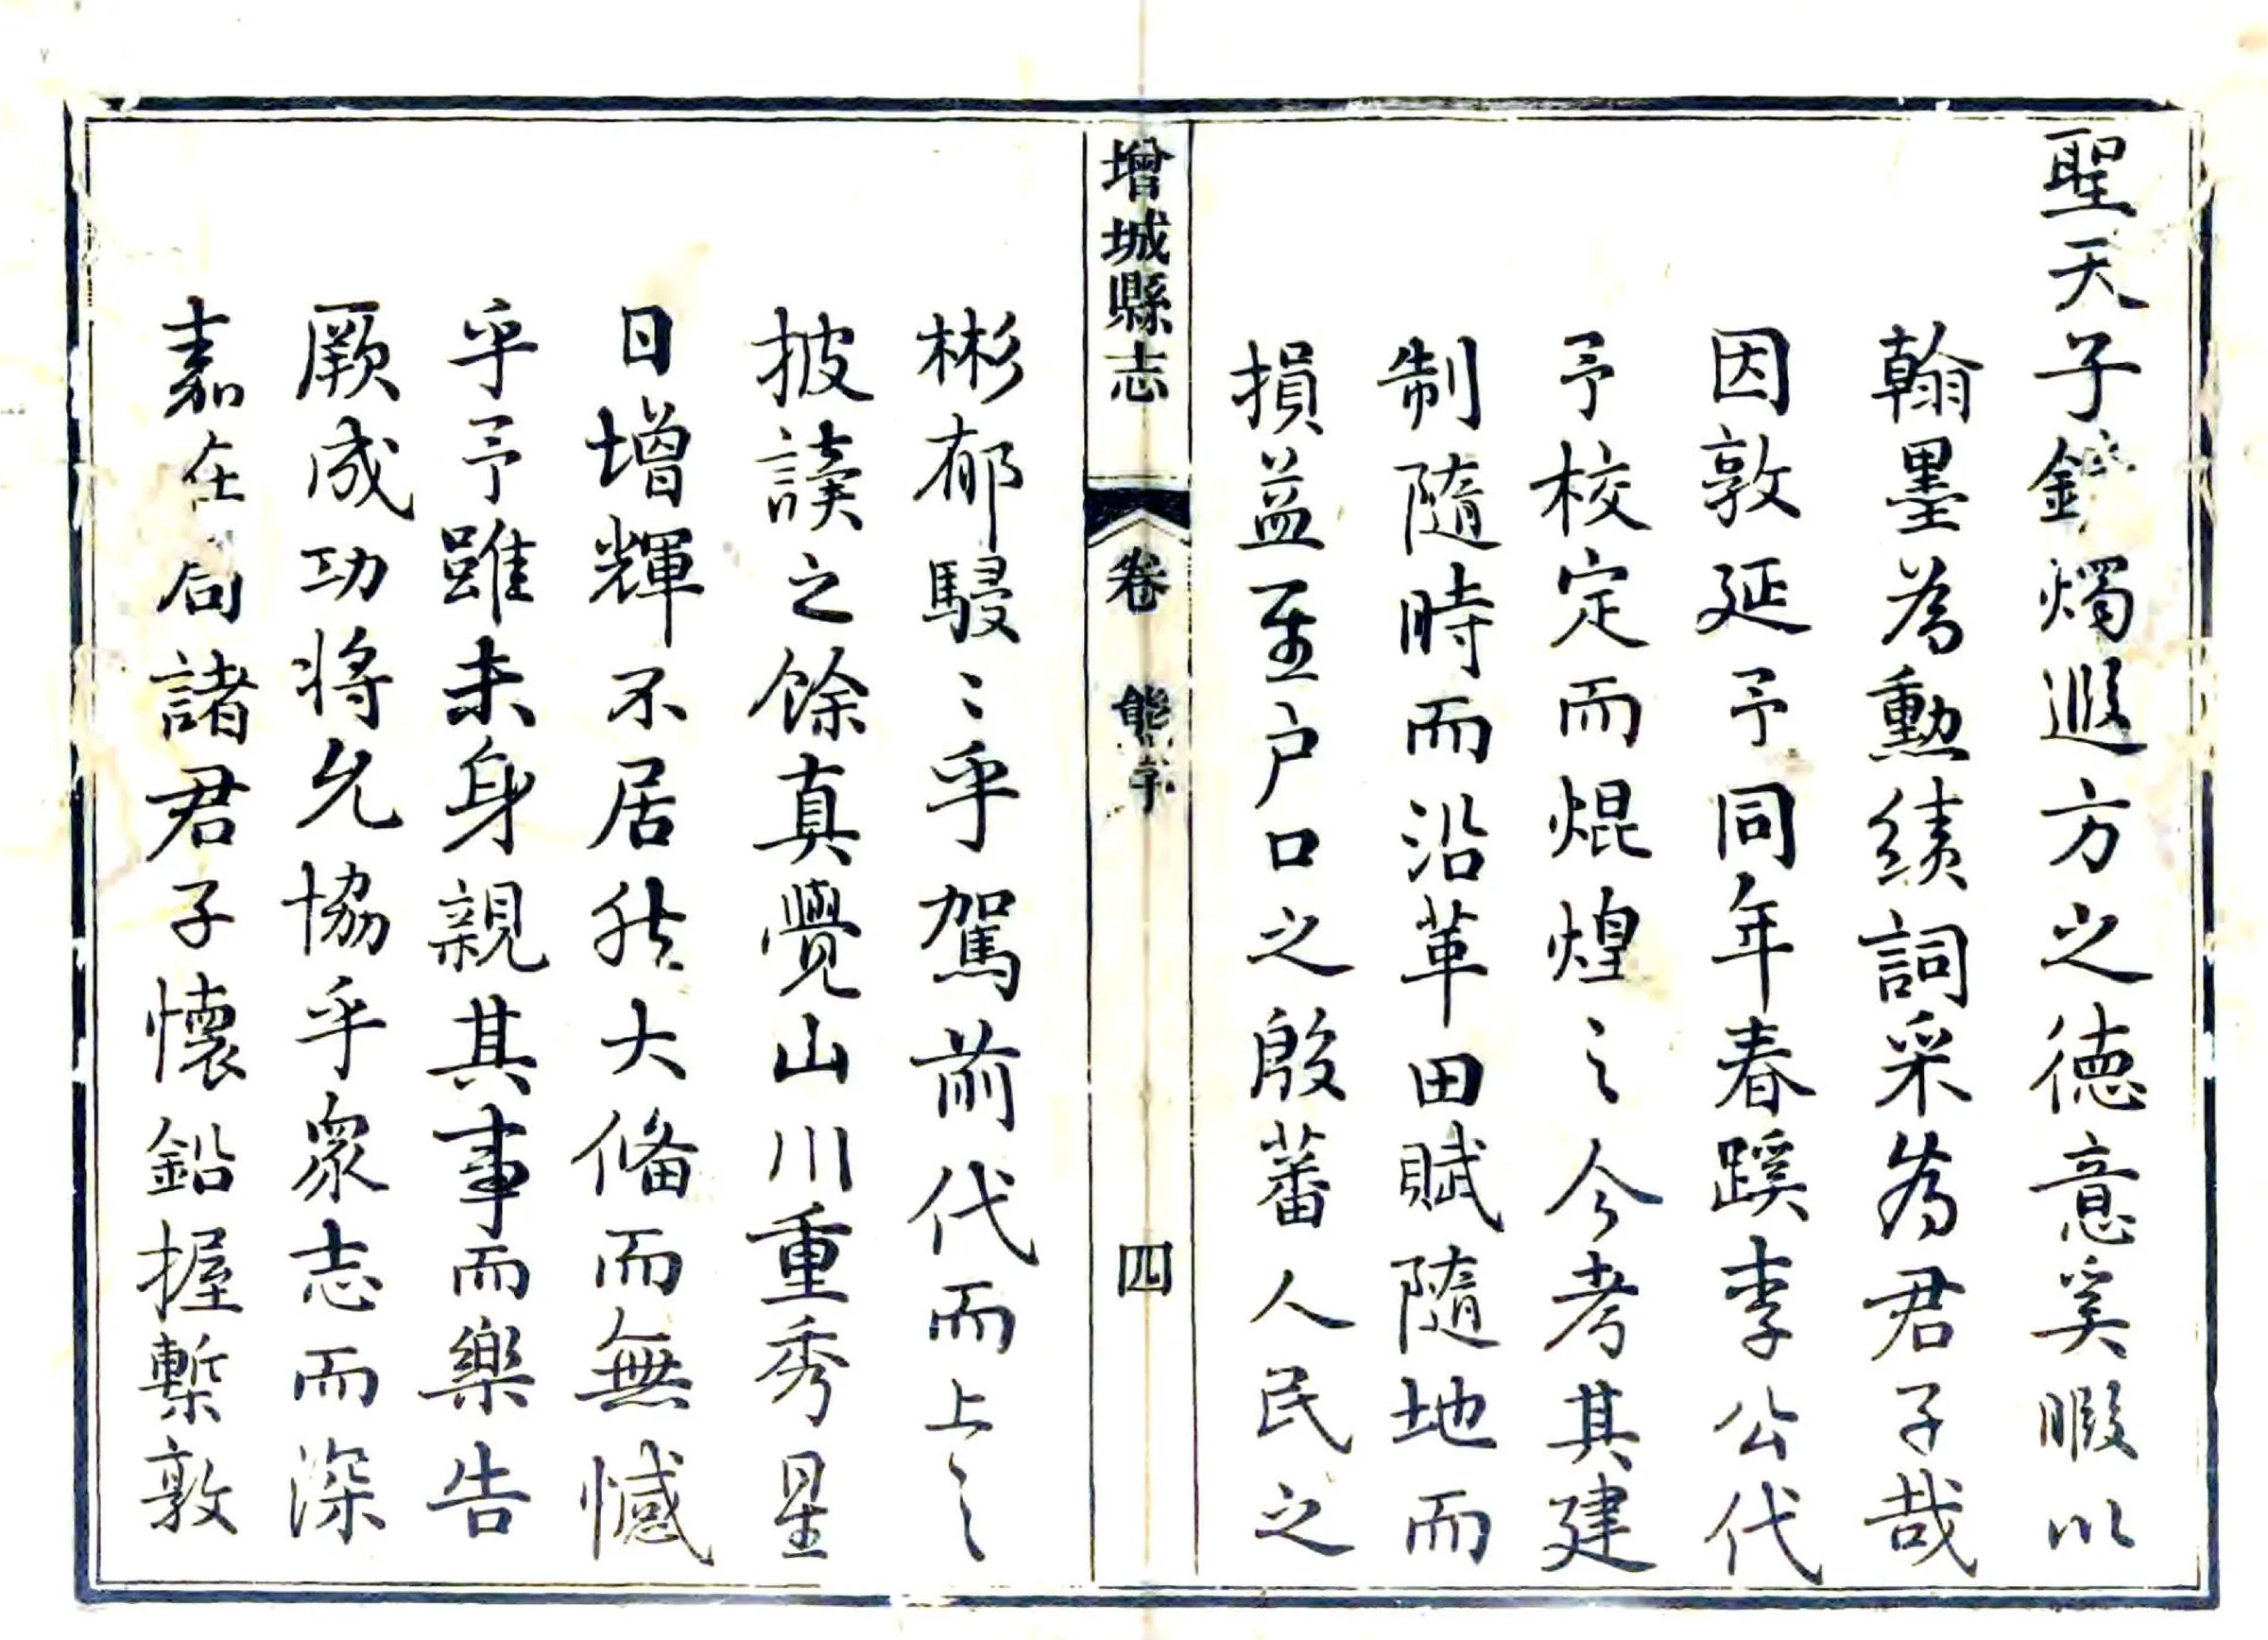 聖天子鑄燭遐方之德意奚暇以
翰墨為勳績詞采為君子哉
因敦延予同年春蹊李公代
予校定而焜煌〻今考其建
制隨時而沿革田賦隨地而
損益至户口之殷蕃人民之
增城縣志
卷
四
彬郁駸〻乎駕前代而上之
披讀之餘真覺山川重秀星
日增輝不居然大俻而無憾
乎予雖未身親其事而樂告
厥成功将允協乎眾志而深
嘉在局諸君子懷鉛握槧敦